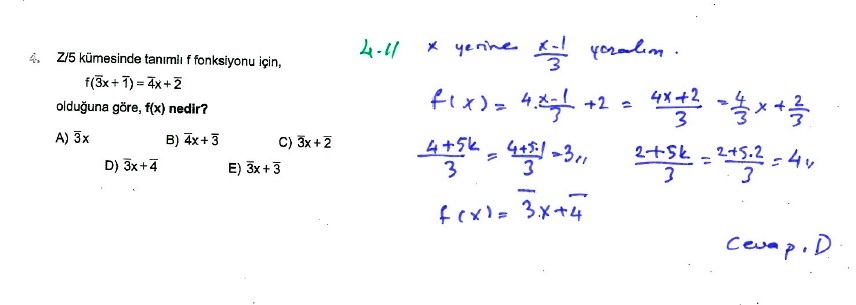 4. Z/5 kümesinde tanımlı f fonksiyonu için,
f(3̅x + 1̅) = 4̅x + 2̅
olduğuna göre, f(x) nedir?
A) 3̅x B) 4̅x + 3̅ C) 3̅x + 2̅
D) 3̅x + 4̅ E) 3̅x + 3̅
4-11 x yerine (x-1)/3 yazalım.
f(x) = 4.(x-1)/3 + 2 = (4x+2)/3 = 4/3 x + 2/3
(4+5k)/3 = (4+5.1)/3 = 3,, (2+5k)/3 = (2+5.2)/3 = 4,,
f(x) = 3̅x + 4̅
Cevap. D